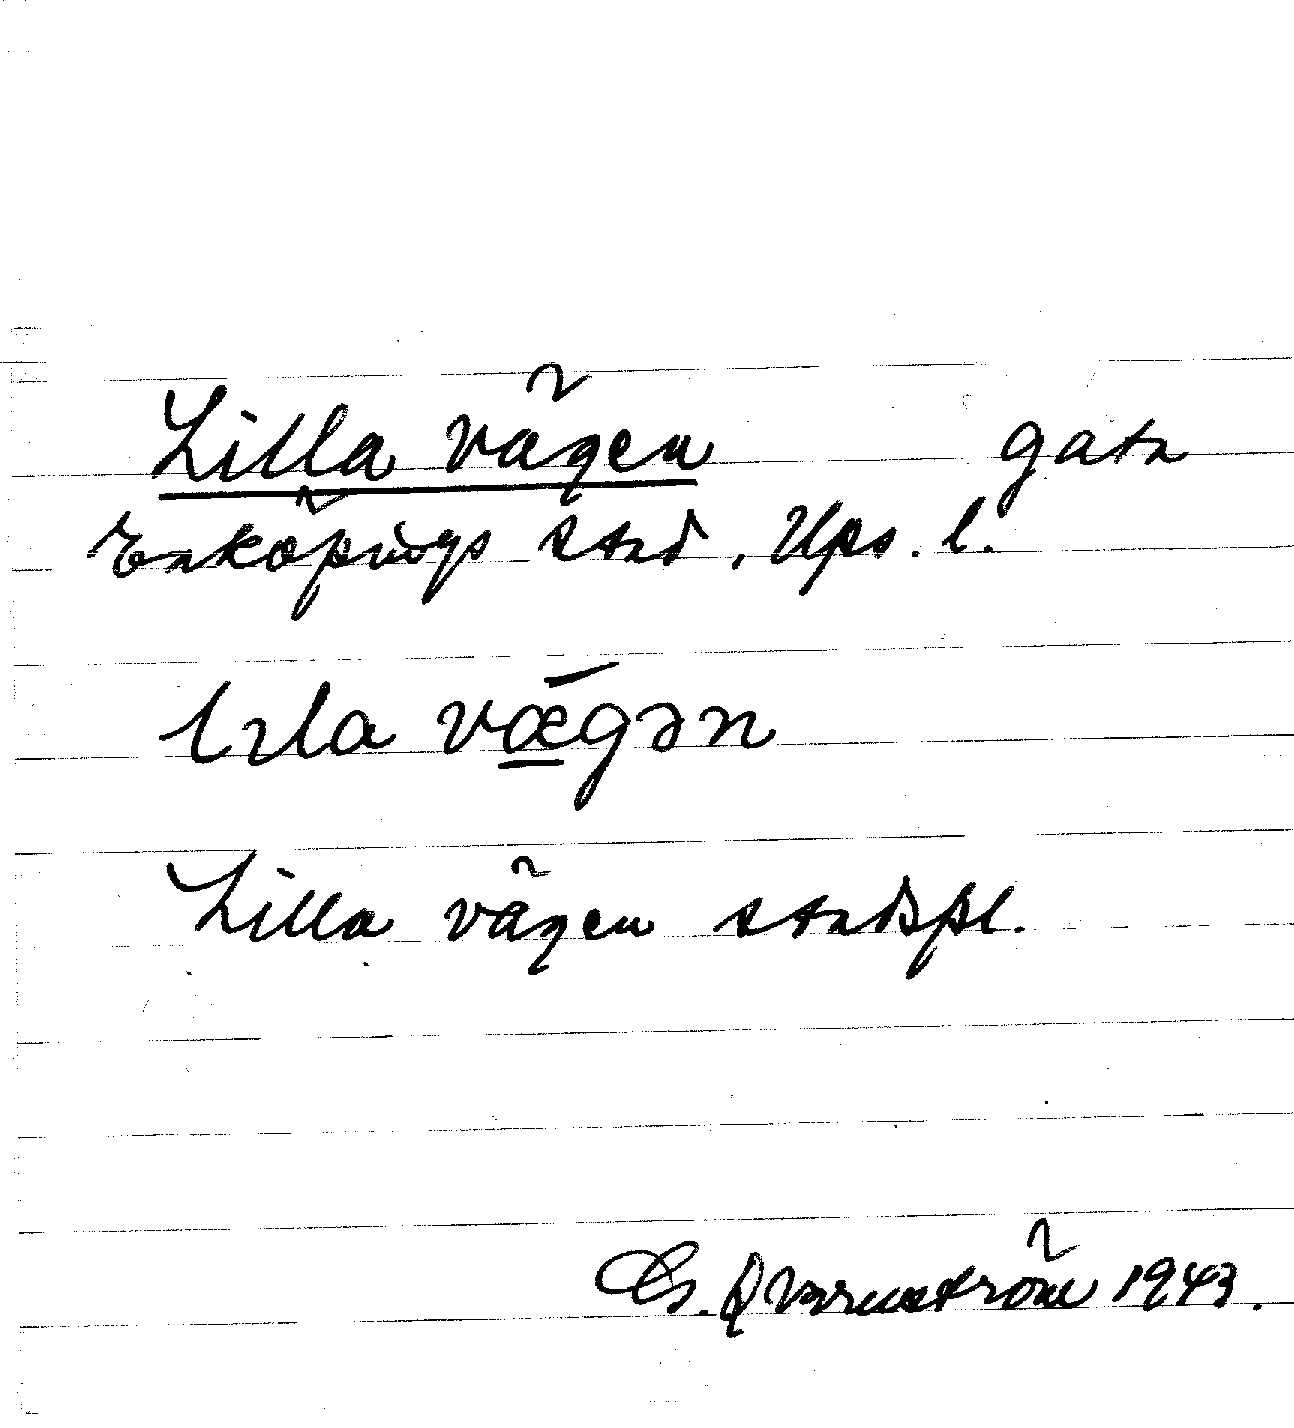 Lilla vägen gata
Enköpings stad, Ups. l.
lɩla vǣgən
Lilla vägen stadspl.
G. Qvarnström 1943.